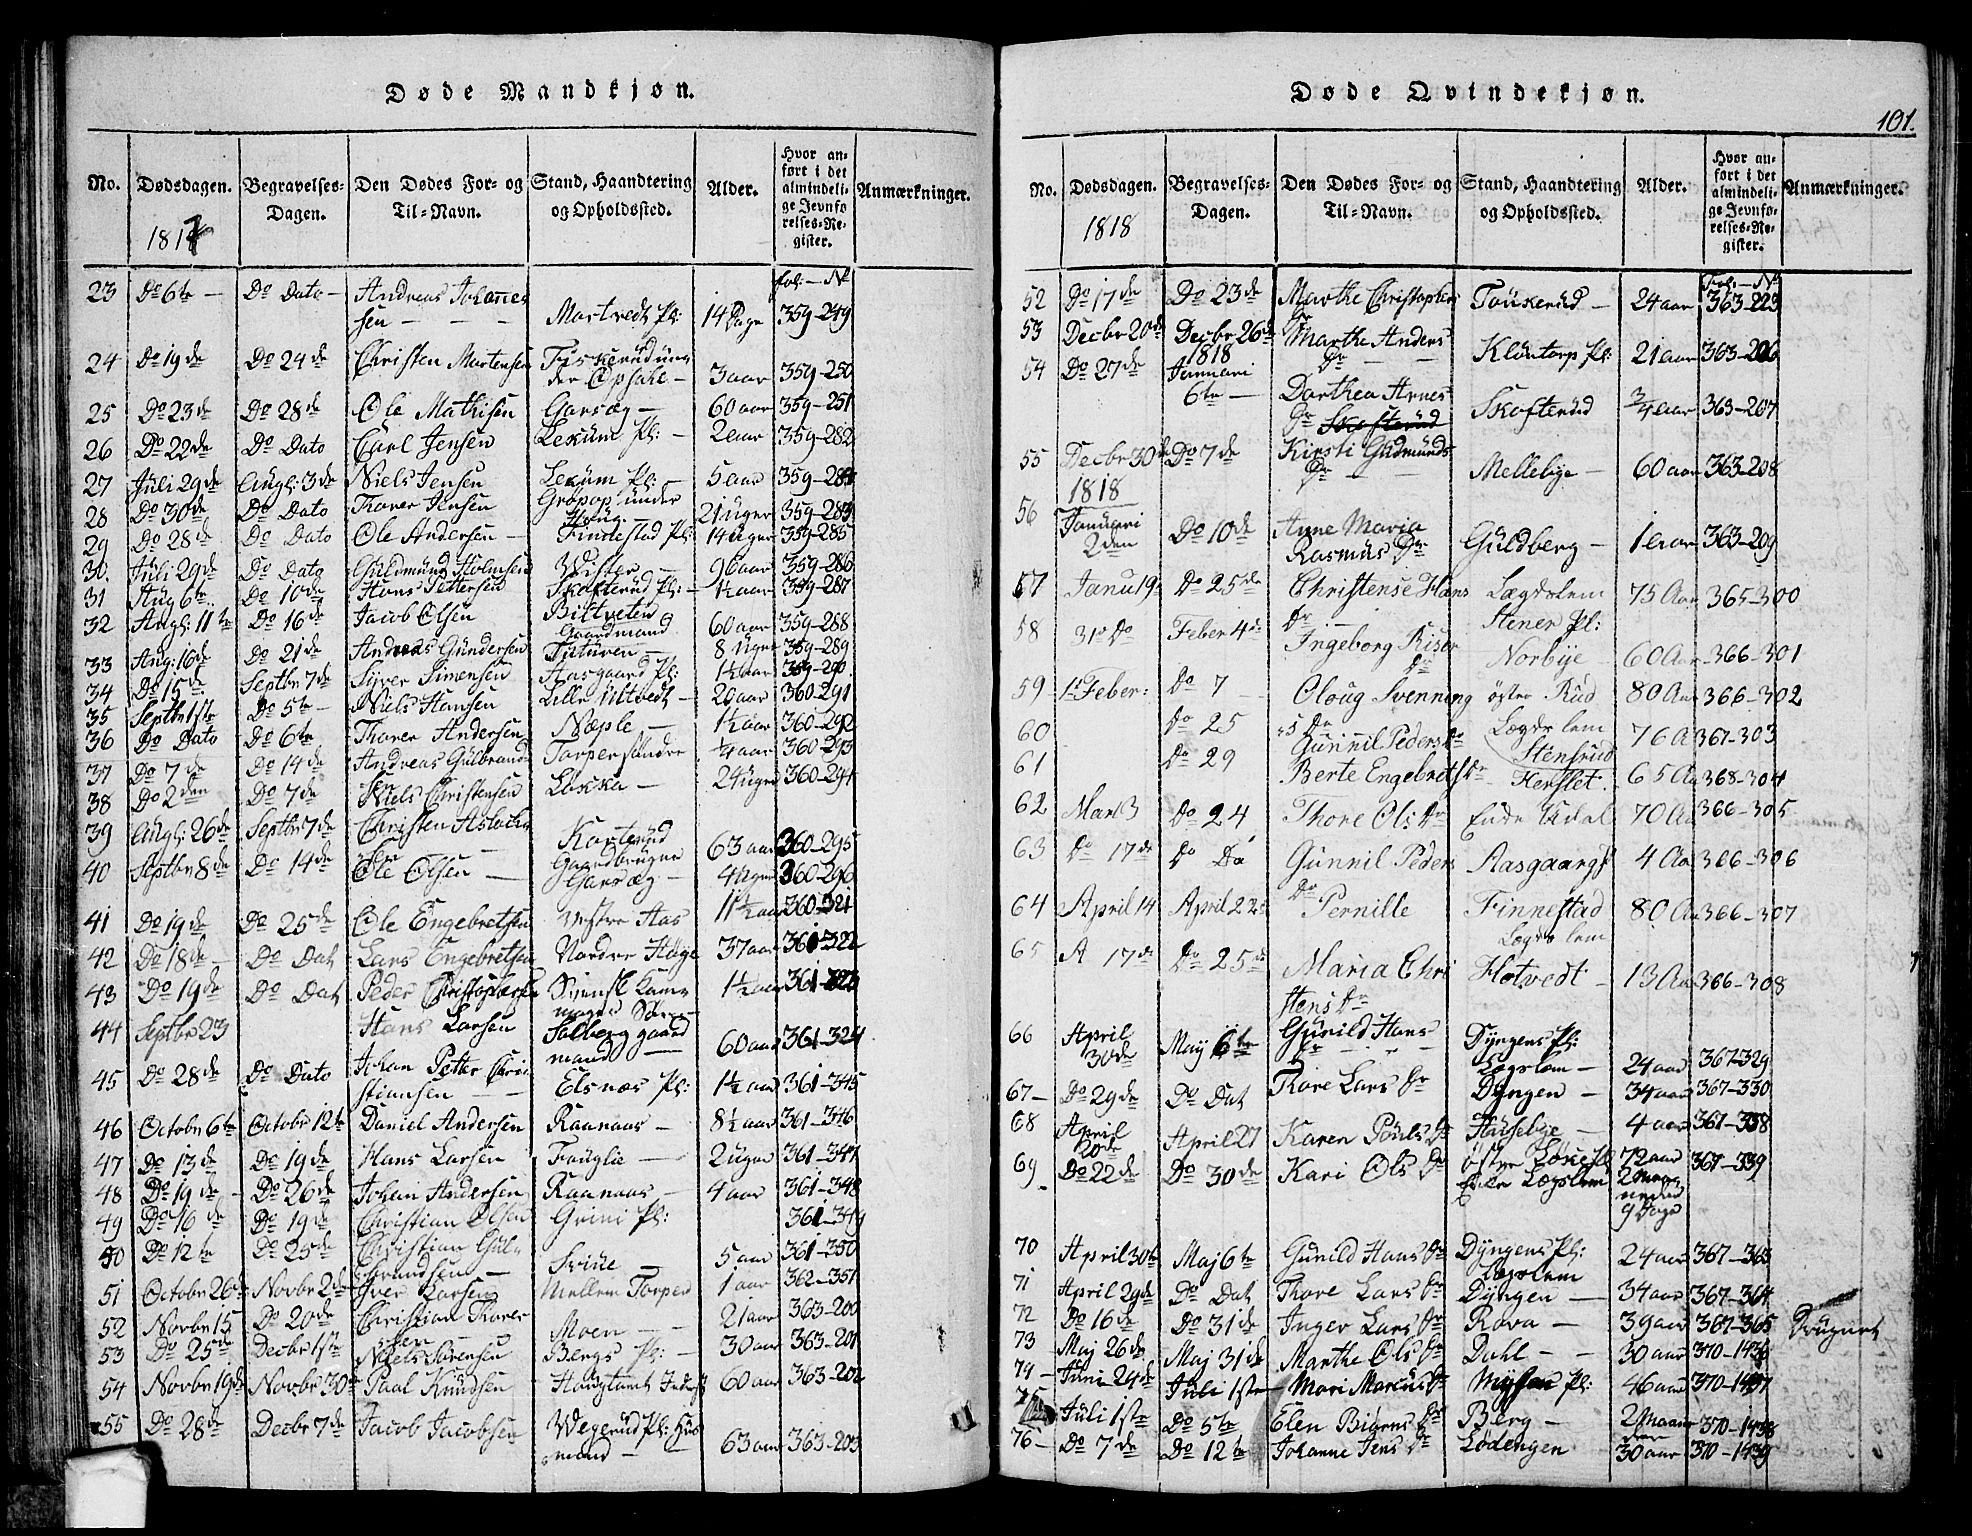 Døde Mandkjøn.
No. Dødsdagen. Begravelses-Dagen. Den Dødes For- og Til-Navn. Stand, Haandtering og Opholdssted. Alder. Hvor anført i det almindelige Jevnførelses-Register. Anmærkninger.
1817
fol: — No
23 Do 6te — Do Dato — Andreas Johannes
sen — — — Mortvedt Pl: 14 Dage 359-249
24 Do 19de Do 24de Christen Martensen Fiskerud un
der Opsahe — 3 aar 359-250
25 Do 23de Do 28de Ole Mathisen Garsæg — 60 aar 359-251
26 Do 22de Do Dato Carl Jensen Lekum Pl: — 2 aar 359-282
27 Juli 29de Augl: 3de Niels Jensen Lekum Pl: — 5 aar 359-284
28 Do 30de Do Dato Thorer Jensen Gropop under
Houg. 21 Uger 359-283
29 Do 28de Do Dato Ole Andersen — Findestad Pl: 14 Uger 359-285
30. Juli 29de Do Dato Guldmund Holmsen Wister — 96 aar 359-286
31 Aug 6te Do 10de Hans Pettersen Skofterud Pl: — 1½ aar 359-287
32 Augl: 11te Do 16de Jacob Olsen Bittveten
Gaardmand 60 aar 359-288
33 Aug: 16de Do 21de Andreas Gundersen Tuturen — 8 Uger 359-289
34 Do 15de Septbr 7de Syver Simensen Aasgaard Pl: 1½ aar 359-290
35 Septbr 1ste Do 5te — Niels Hansen Lille Ultvedt — 20 aar 360-291
36 Do Dato Do 6te Thorer Andersen Næple — 1½ aar 360-292
37 Do 7de Do 14de Andreas Gulbrand Torper søndre ¼ aar 360-293
38 Do 2den Do 7de Niels Christensen Løkka — 24 Uger 360-294
39 Augl: 26de Septbr 7de Christen Aslachs
sen Korterud
Gaardbruger 63 aar 360-295
40 Septbr 8de Do 14de Ole Olsen — Garsæg — 4 Uger 360-296
41 Do 19de Do 25de Ole Engebretsen Vestre Aas 11½ aar 360-321
42 Do 18de — Do Dat Lars Engebretsen Nordre Hage 37 aar 361-322
43 Do 19de Do Dat Peder Christophersen Svensk Kam
mager Søn 1½ aar 361-323
44 Septbr 23 Hans Larsen Solberg gaard
mand — 60 aar 361-324
45 Do 28de Do Dato Johan Petter Chri
stiansen — — Elsnæs Pl: 1½ aar 361-345
46 Octobr 6te Octobr 12te Daniel Andersen Raanaas — 8½ aar 361-346
47 Do 13de Do 19de Hans Larsen Fouglie — 2 uger 361-347
48 Do 19de — Do 26de Johan Andersen Raanaas — 4 aar 361-348
49 Do 16de Do 19de Christian Olsen Grini Pl: 361-349
50 Do 12te Do 25de Christian Gul-
brandsen — Sviue — 5 aar 361-350
51 Octobr 26de Novbr 2de Iver Larsen Mellem Torper 1 aar 362-351
52 Novbr 15 Do 20de Christian Thorer
sen — Moen — — 21 aar 363-200
53 Do 25de Decbr 1ste Niels Sørensen Bergs Pl: — 30 aar 363-201
54 Novbr 19de Novbr 30te Paal Knudsen Hougtomt Inderst 60 aar 363-202
55 Do 28de Decbr 7de Jacob Jacobsen Wegerud Pl: Hus
mand — 63 aar 363-203
Døde Qvindekjøn.
101.
No. Dødsdagen. Begravelses-Dagen. Den Dødes For- og Til-Navn. Stand, Haandtering og Opholdssted. Alder. Hvor anført i det almindelige Jevnførelses-Register. Anmærkninger.
1818
Fol: — No
52 Do 17de Do 23de Marthe Christophers
Dr Touserud — 24 aar 363-223
53 Decbr 20de Decbr 26de Marthe Anders
Dr — — Kløntorp Pl: 21 aar 363-206
54 Do 27de 1818 Januari
6te — Dorthea Arnes
Dr Skofterud Skofterud ¾ aar 363-207
55 Decbr 30te Do 7de Kirsti Gudmunds
Dr — Mellebye — 60 aar 363-208
1818
56 Januari
2den Do 10de Anne Maria
Rasmus Dr Guldberg — 1 aar 363-209
57 Janu 19 Do 25de Christense Hans
Dr Lægdslem
Stener Pl: 75 Aar 365-300
58 31 Do Feber 4de Ingeborg Riser
Dr Norbye 60 Aar 366-301
59 1ste Feber: Do 7 — Oloug Svenning
s Dr øster Rud 80 Aar 366-302
60 Do 25 Gunnil Peders Dr Lægds lem
Stensrud 76 A 367-303
61 Do 29 Berte Engebrets Dr Herslet 65 Aar 368-304
62 Mar 3 Do 24 Thore Ols Dr Ende Udal 70 Aar 366-305
63 Do 17de Do Do Gunnil Peders
Dr Aasgaard 4 Aar 366-306
64 April 14 April 22 Pernille Finnestad
Lægds lem 80 Aar 366-307
65 A 17de Do 25de Maria Chri
stens Dr Hotvedt — 13 Aar 366-308
66 April
30de May 6te Gunild Hans
Dr Dyngens Pl:
Lægslem — 24 aar 367-329
67 — Do 29de Do Dat Thore Lars Dr Dyngen — 34 aar 367-330
68 April
20de April 27 Karen Pouls Dr Hausebye — 4 aar 367-338
69 Do 22de Do 30de Kari Ols Dr østre Løke Pl
Lægslem 72 aar
2 Maa
neder
9 Dage 367-339
70 April 30te Maj 6te Gunild Hans Dr Dyngens Pl:
Lægslem 24 aar 367-363
71 April 29de Do Dat Thore Lars Dr Dyngen — 34 aar 367-364
72 Do 16de Do 31de Inger Lars Dr Rova — 39 aar 367-365 Drugnet
73 Maj 26de Maj 31de Marthe Ols Dr Dahl — — 30 aar 370-1436
74 Juni 24de Juli 1ste Mari Marcus Dr Mysen Pl: 46 aar 370-1437
75 Juli 1ste Do 5te Elen Biørns Dr Berg — 2 Maane
der 370-1438
76 — Do 7de Do 12te Johanne Jens Dr Lødengen 30 aar 370-1439